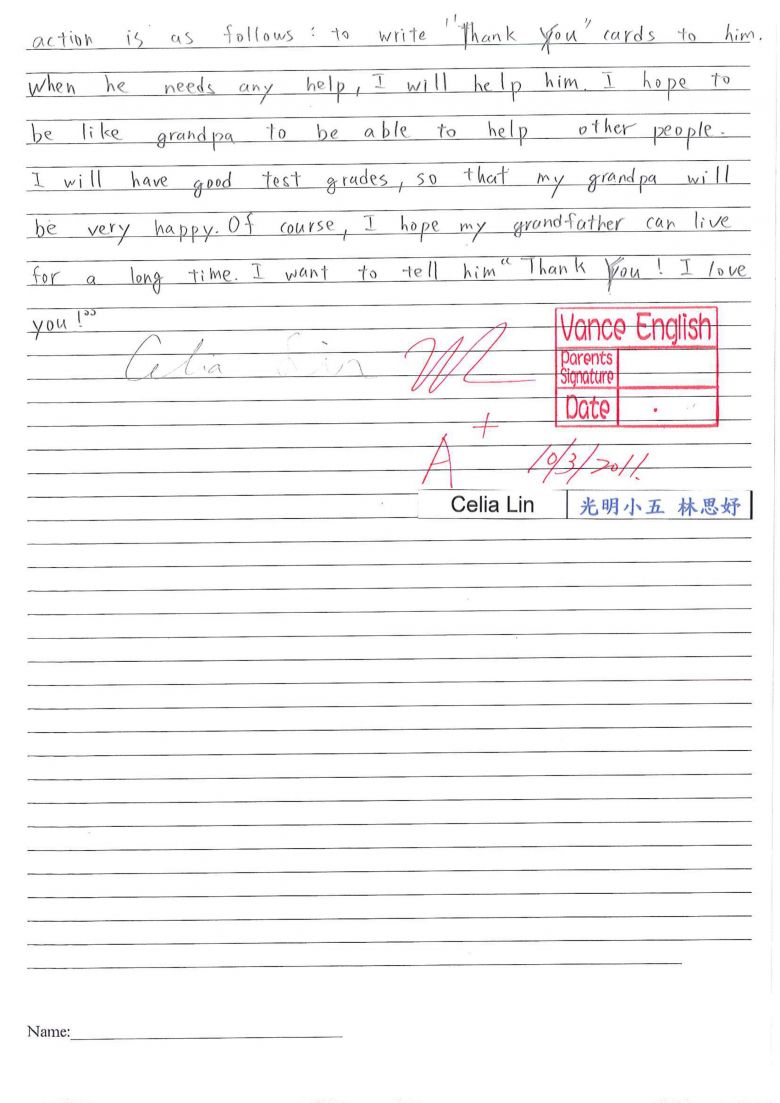 action is as follows: to write "Thank You" cards to him.
When he needs any help, I will help him. I hope to
be like grandpa to be able to help other people.
I will have good test grades, so that my grandpa will
be very happy. Of course, I hope my grandfather can live
for a long time. I want to tell him “Thank You! I love
you!”
Celia Lin
Vance English
Parents
Signature
Date
A+
10/3/2011.
Celia Lin 光明小五 林思妤
Name: